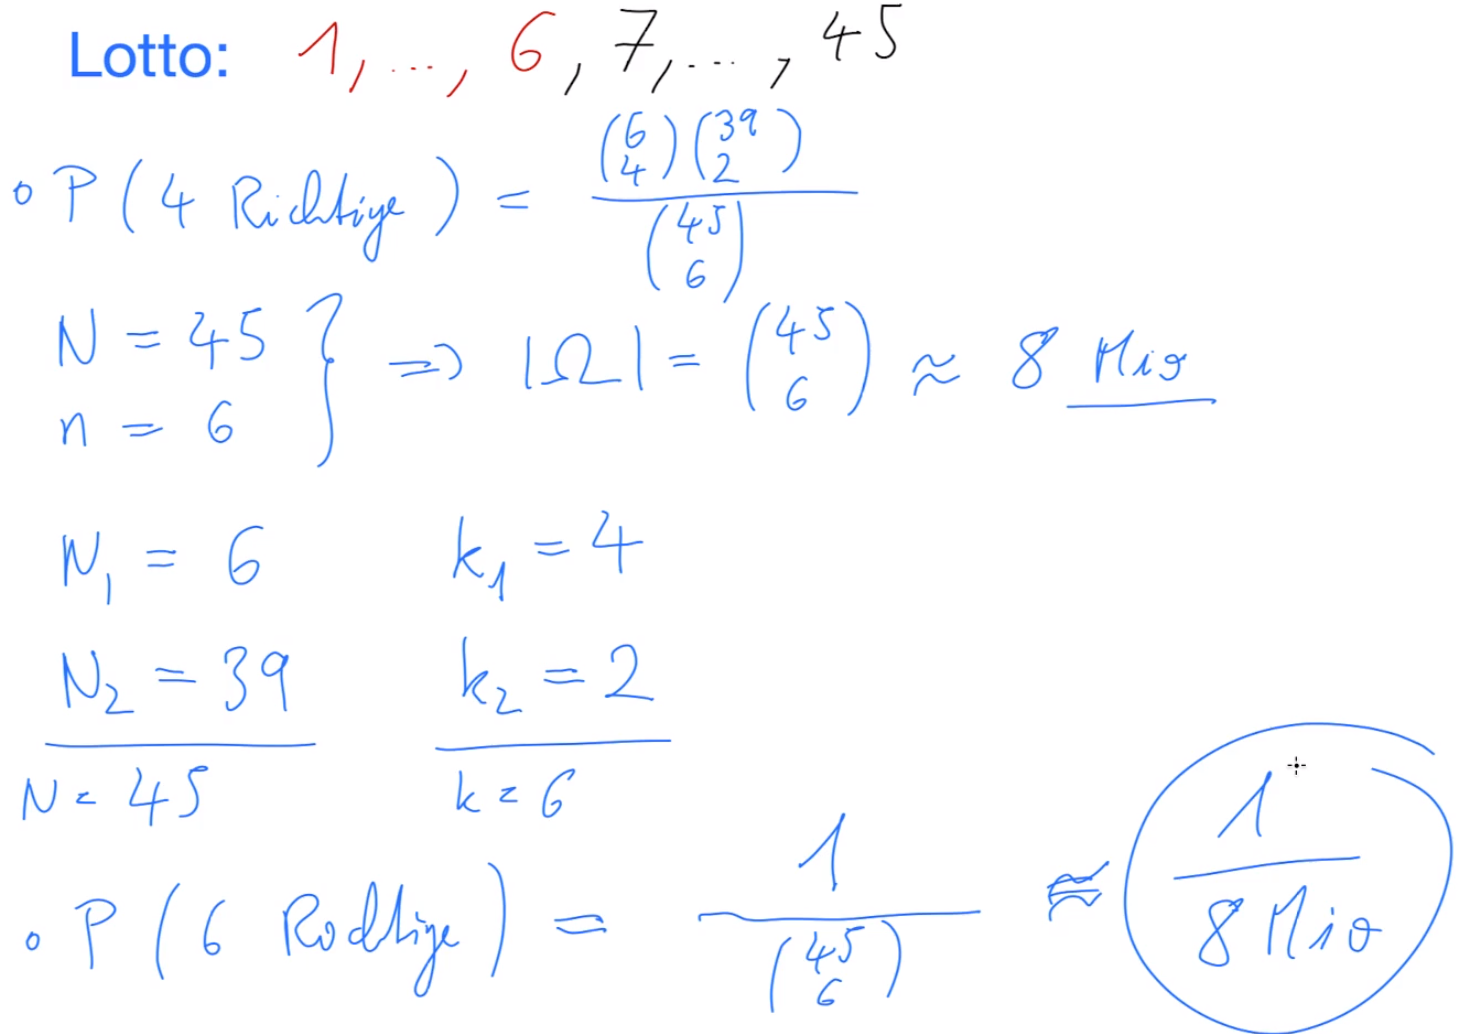 Lotto: 1, ..., 6, 7, ..., 45
∘ P(4 Richtige) = \frac{\binom{6}{4}\binom{39}{2}}{\binom{45}{6}}
N = 45
n = 6 } ⇒ |Ω| = \binom{45}{6} ≈ 8 Mio
N₁ = 6 k₁ = 4
N₂ = 39 k₂ = 2
N = 45 k = 6
∘ P(6 Richtige) = \frac{1}{\binom{45}{6}} ≈ \frac{1}{8 Mio}